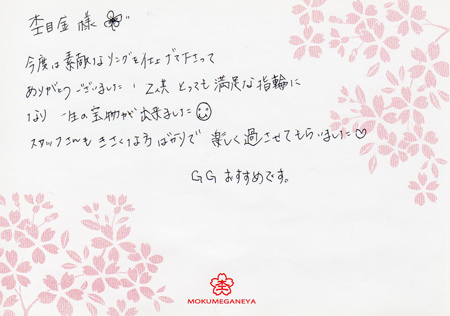 杢目金様
今度は素敵なリングを仕上げて下さって
ありがとうございました! 2人共 とっても満足な指輪に
なり 一生の宝物が出来ました
スタッフさんも きさくな方ばかりで 楽しく過させてもらいました♡
GGおすすめです。
杢
MOKUMEGANEYA